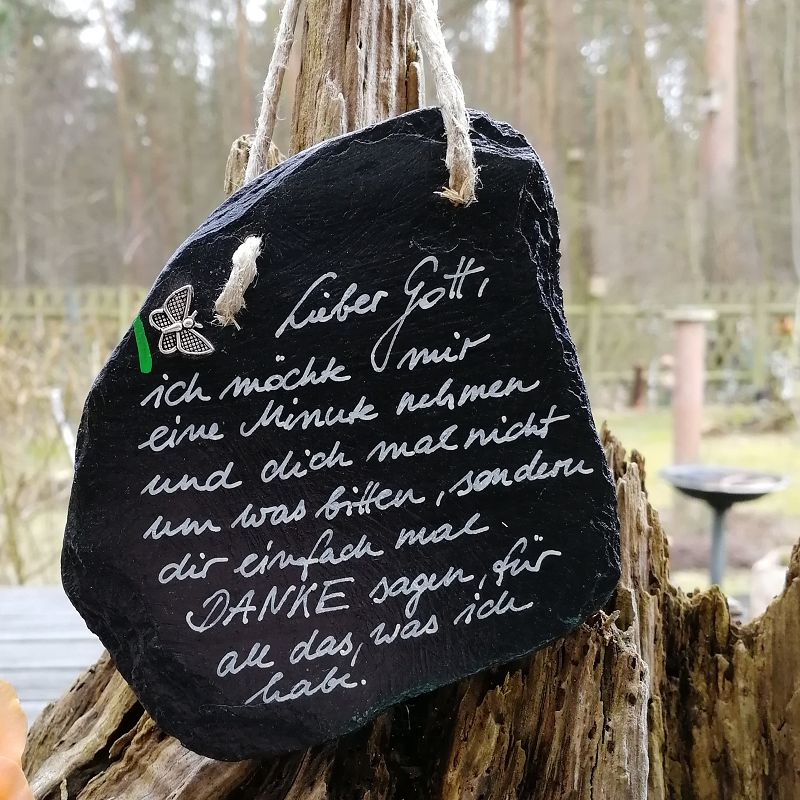 Lieber Gott,
ich möchte mir
eine Minute nehmen
und dich mal nicht
um was bitten, sondern
dir einfach mal
DANKE sagen, für
all das, was ich
habe.